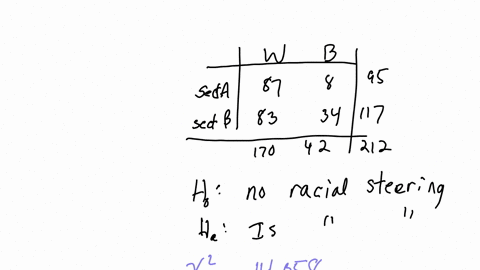 W B
sect A 87 8 95
sect B 83 34 117
170 42 212
H₀: no racial steering
Hₐ: Is " "